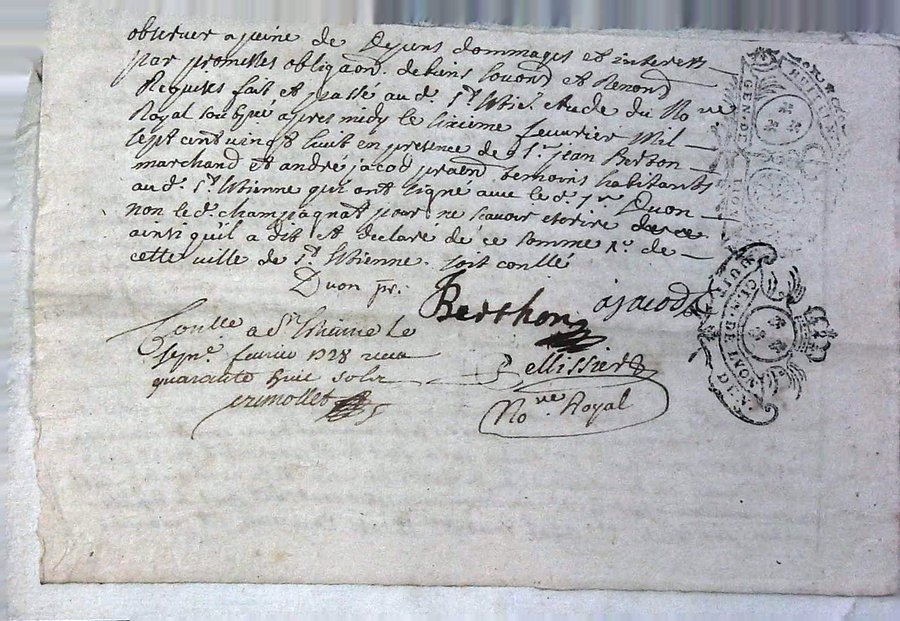 observer a peine de Depens dommages et interets
par promesses obligaon. debiens soumd et Renond
Requises fait et passé au d. St. Etiene. Etude du No re
Royal soubsné apres midy le sixieme feuvrier Mil
sept cent vingt huit en presence de Sr. jean Berton
marchand et andré jacod praen temoins habitants
au d. St. Etienne qui ont signé avec le d. Sr Duon
non le d. champagnat pour ne scavoir escrire de ce
ainsi quil a dit et declaré de ce somme Ro. de
cette ville de St. Etienne. soit conllé
Duon pr.
Berthon
a jacod
Conlle a St. Etienne le
sepme fevrier 1728 receu
quarante huit solz
crimollet
Pellissier
No. re Royal
GEN. DE LION
HUIT DEN.
HUIT
GEN. DE LION